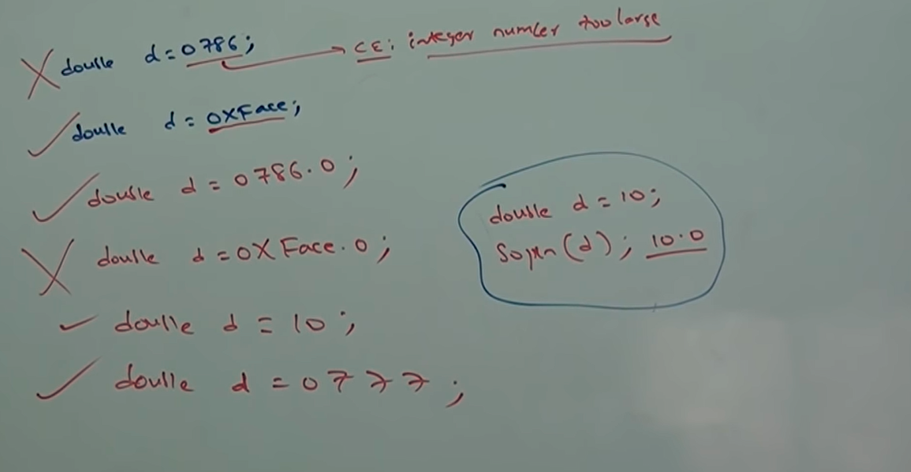 double d=0786; → CE: integer number too large
double d=0XFace;
double d=0786.0;
double d=0XFace.0;
double d=10;
double d=0777;
double d=10;
Sopln(d); 10.0